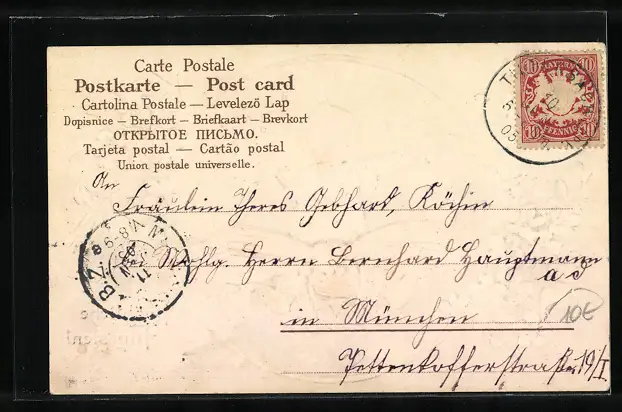 Carte Postale
Postkarte — Post card
Cartolina Postale — Levelező Lap
Dopisnice — Brefkort — Briefkaart — Brevkort
ОТКРЫТОЕ ПИСЬМО.
Tarjeta postal — Cartão postal
Union postale universelle.
BAYERN
10 10
PFENNIG
An
Fräulein Theres Gebhard, Köchin
bei Wohlg. Herrn Bernhard Hauptmann
a d
in München
Pettenkofferstraße 19/I
10€